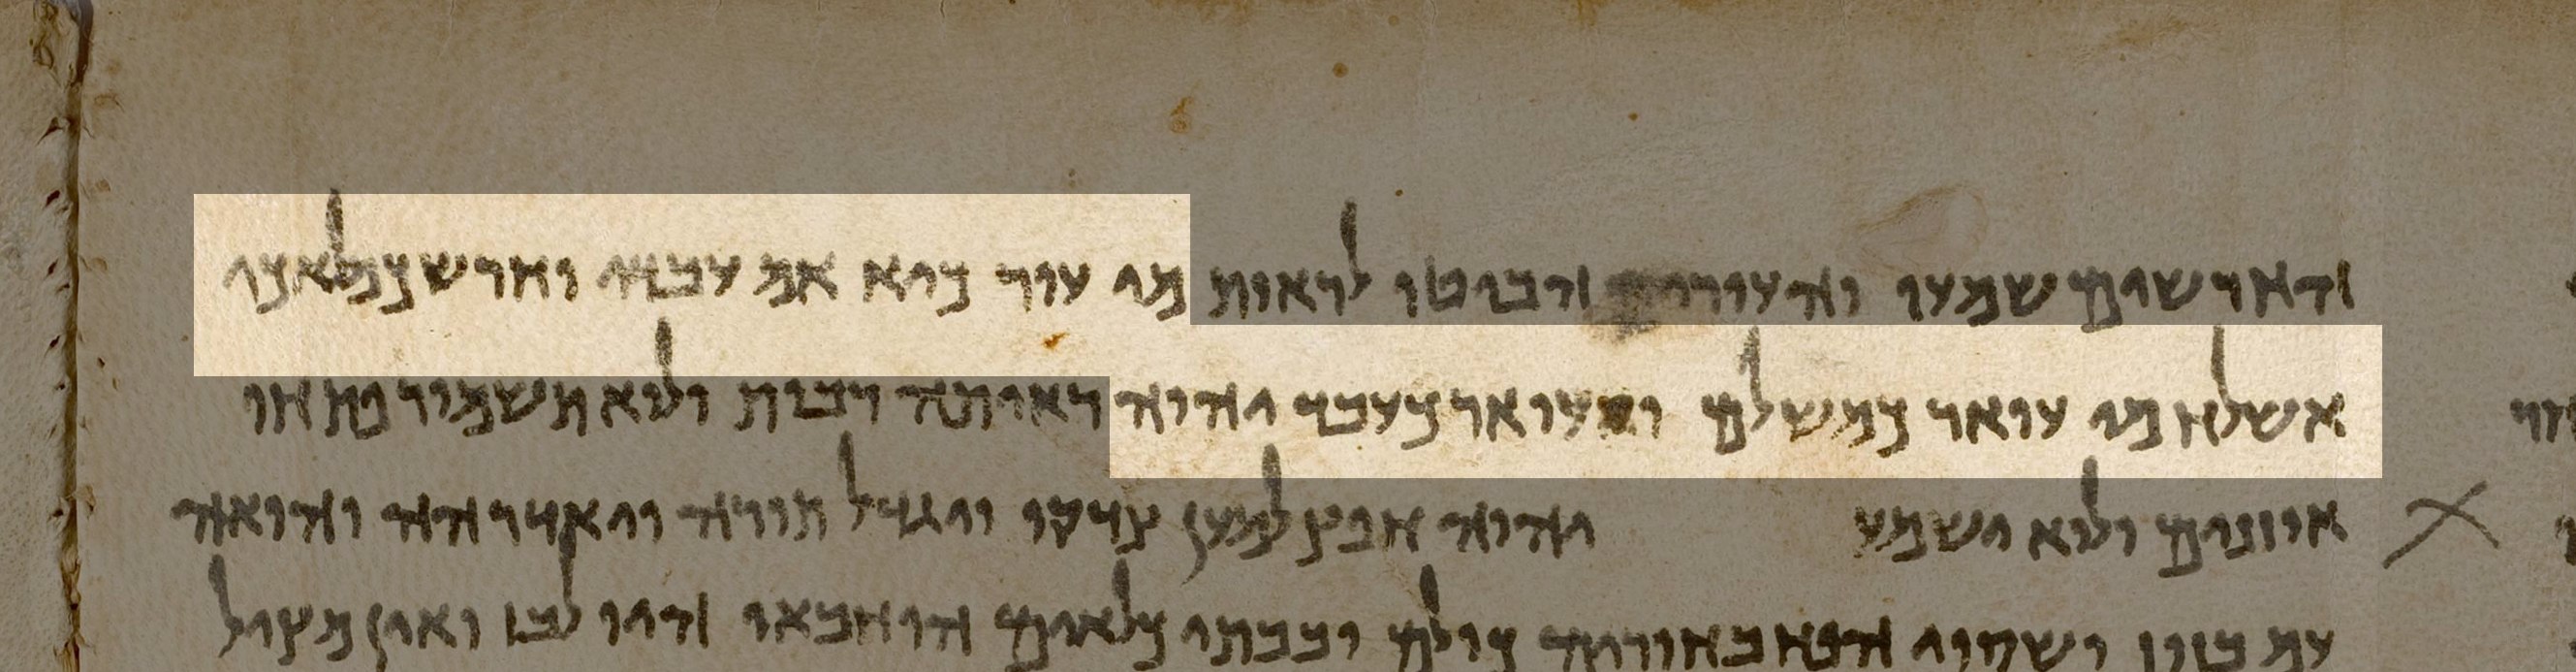 החרשים שמעו והעורים הביטו לראות מי עור כיא אם עבדי וחרש כמלאכי
אשלח מי עואר כמשלם ועואר כעבד יהוה ראיתה רבות ולוא תשמור פתחו
אוזנים ולוא ישמע יהוה חפץ למען צדקו ויגדל תורה ויאדרהה והואה
עם בזוז ושסוי הפח בחורים כולם ובבתי כלאים הוחבאו היו לבז ואין מציל